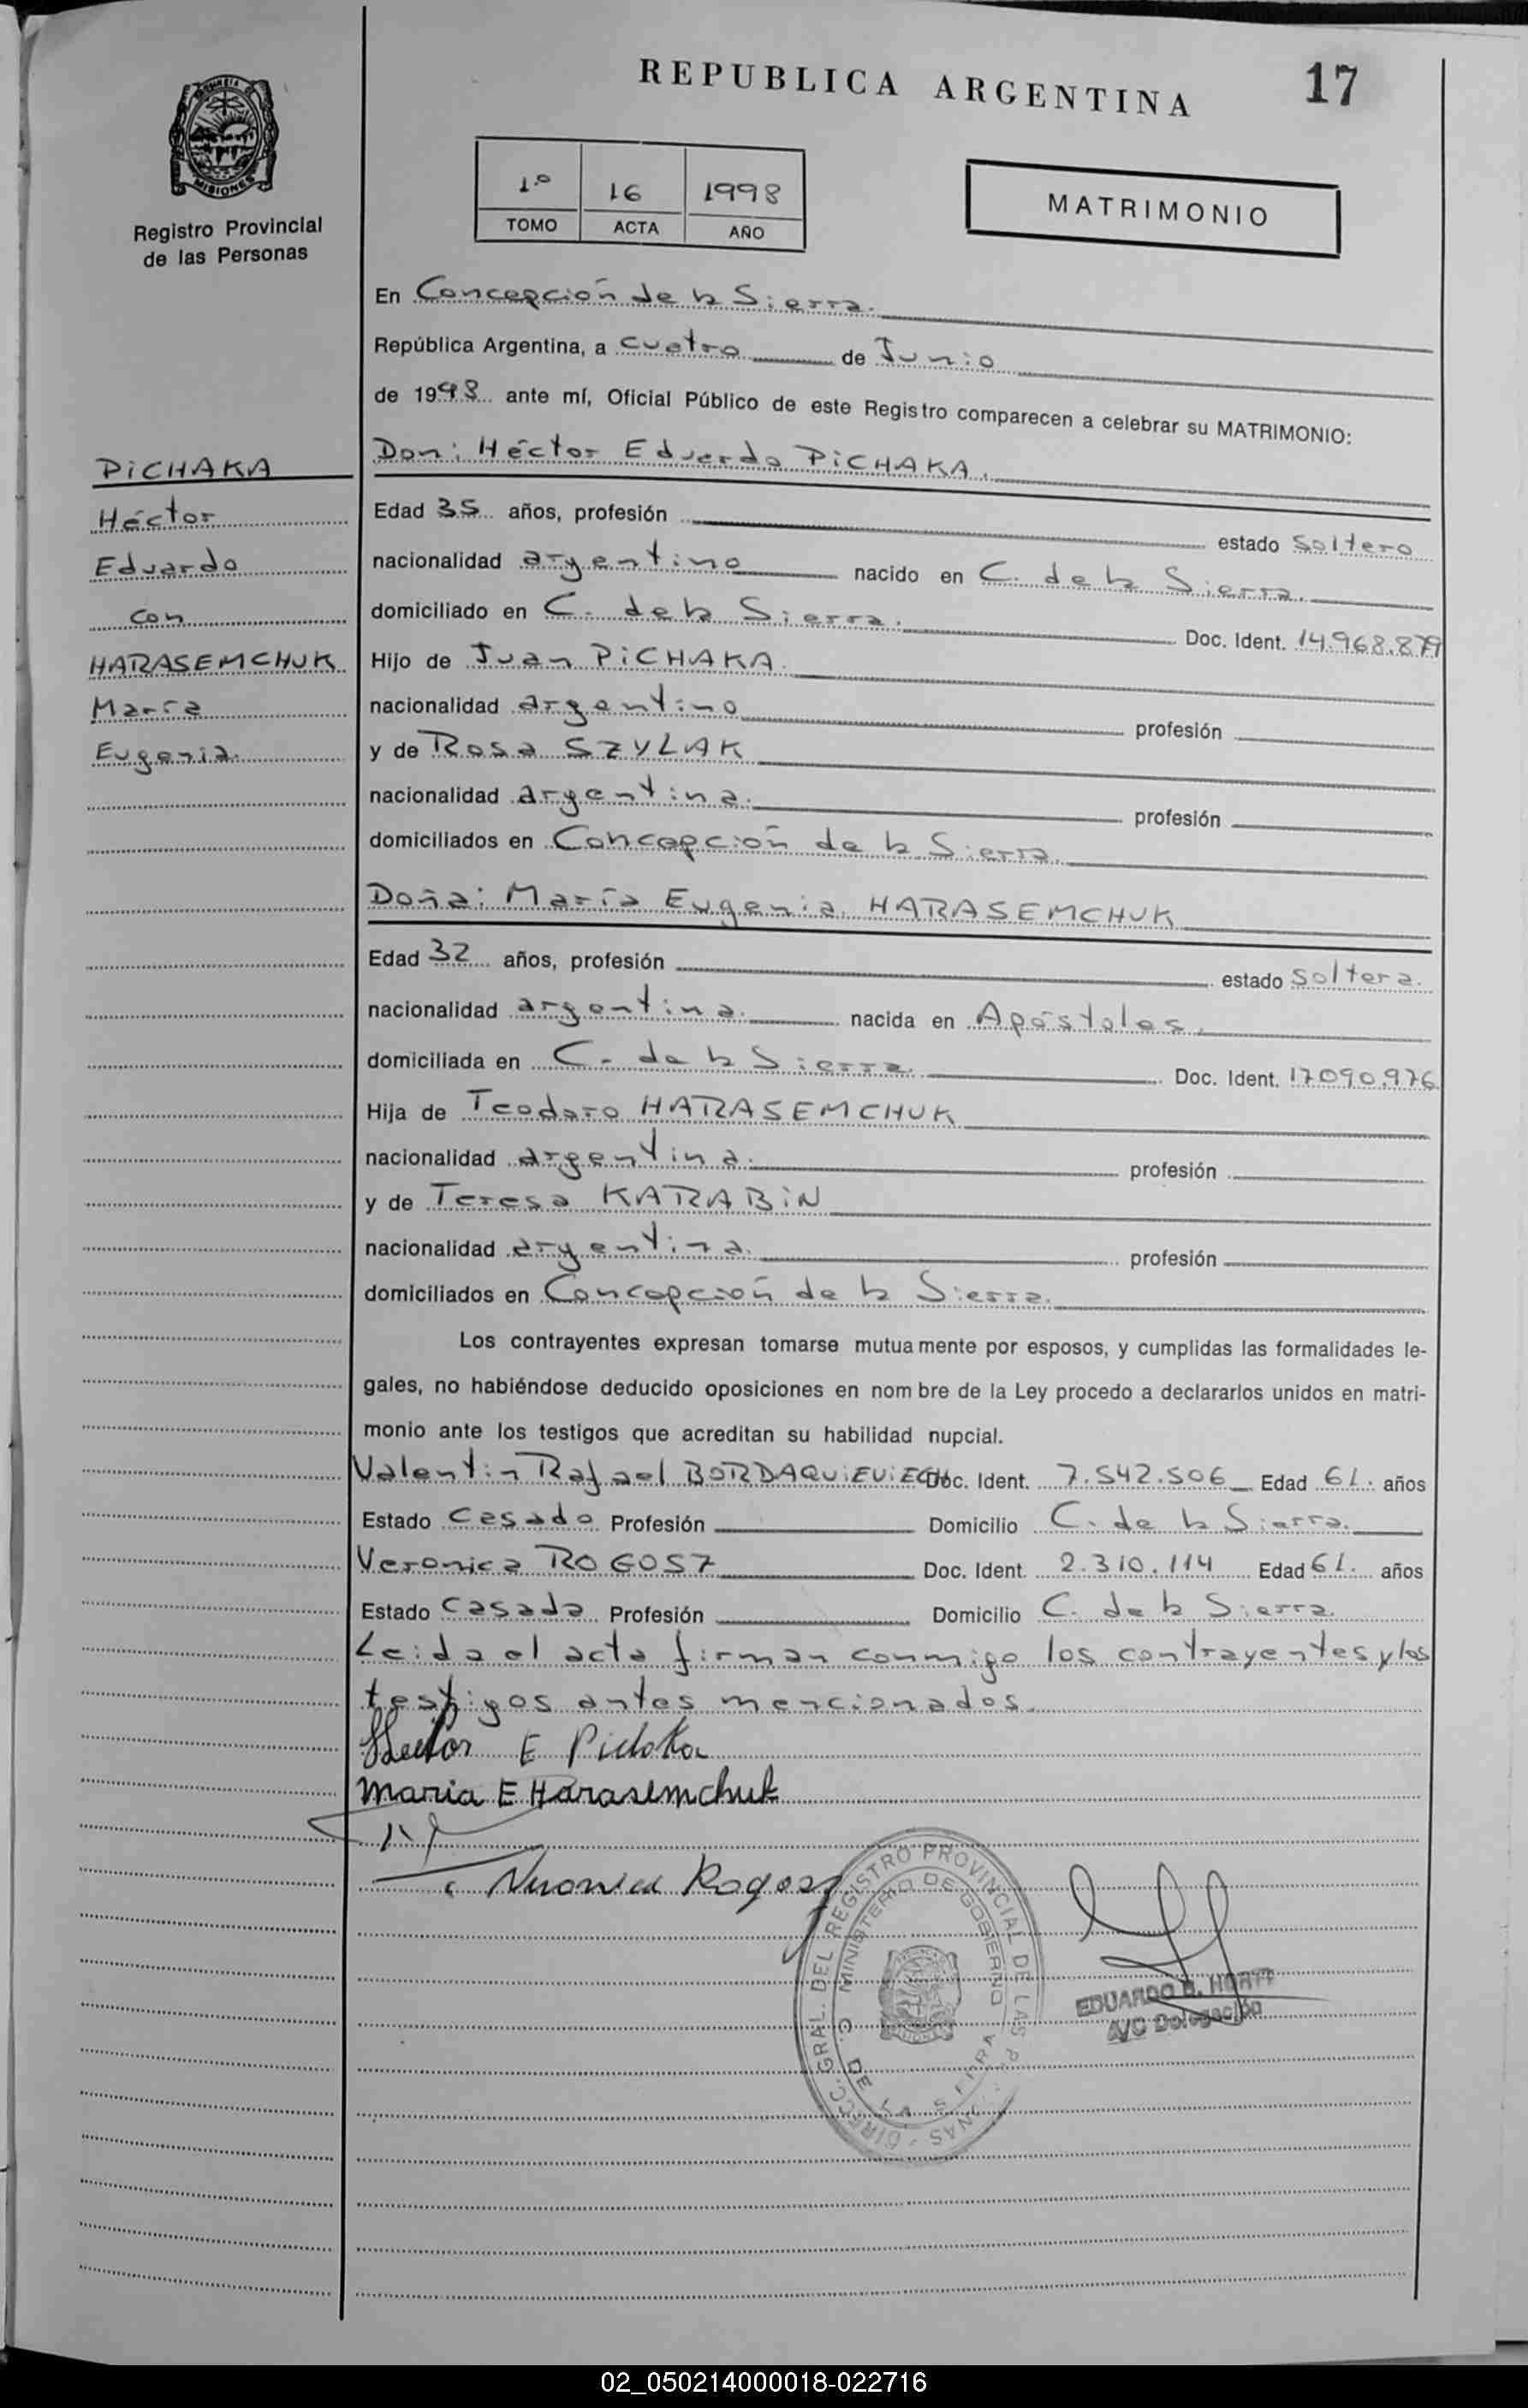 REPUBLICA ARGENTINA
17
MISIONES
Registro Provincial
de las Personas
1.º 16 1998
TOMO ACTA AÑO
MATRIMONIO
En Concepción de la Sierra.
República Argentina, a cuatro de Junio
de 1998 ante mí, Oficial Público de este Registro comparecen a celebrar su MATRIMONIO:
PiCHAKA
Héctor
Eduardo
con
HARASEMCHUK
María
Eugenia.
Don: Héctor Eduardo PiCHAKA.
Edad 35 años, profesión estado soltero
nacionalidad argentino nacido en C. de la Sierra.
domiciliado en C. de la Sierra. Doc. Ident. 14.968.879
Hijo de Juan PiCHAKA.
nacionalidad argentino profesión
y de Rosa SZYLAK
nacionalidad argentina. profesión
domiciliados en Concepción de la Sierra.
Doña: María Eugenia HARASEMCHUK
Edad 32 años, profesión estado soltera.
nacionalidad argentina. nacida en Apóstoles.
domiciliada en C. de la Sierra. Doc. Ident. 17.090.976
Hija de Teodoro HARASEMCHUK
nacionalidad argentina. profesión
y de Teresa KARABiN
nacionalidad argentina. profesión
domiciliados en Concepción de la Sierra.
Los contrayentes expresan tomarse mutuamente por esposos, y cumplidas las formalidades le-
gales, no habiéndose deducido oposiciones en nombre de la Ley procedo a declararlos unidos en matri-
monio ante los testigos que acreditan su habilidad nupcial.
Valentin Rafael BORDAQUiEViECH Doc. Ident. 7.542.506 Edad 61. años
Estado casado Profesión Domicilio C. de la Sierra.
Veronica ROGOSZ Doc. Ident. 2.310.114 Edad 61. años
Estado casada Profesión Domicilio C. de la Sierra.
Leida el acta firman conmigo los contrayentes y los
testigos antes mencionados.
Hector E Pichaka
Maria E Harasemchuk
Veronica Rogosz
DIRECC. GRAL. DEL REGISTRO PROVINCIAL DE LAS
MINISTERIO DE GOBIERNO
C. DE LA SIERRA
EDUARDO
A/C Delegación
02_050214000018-022716